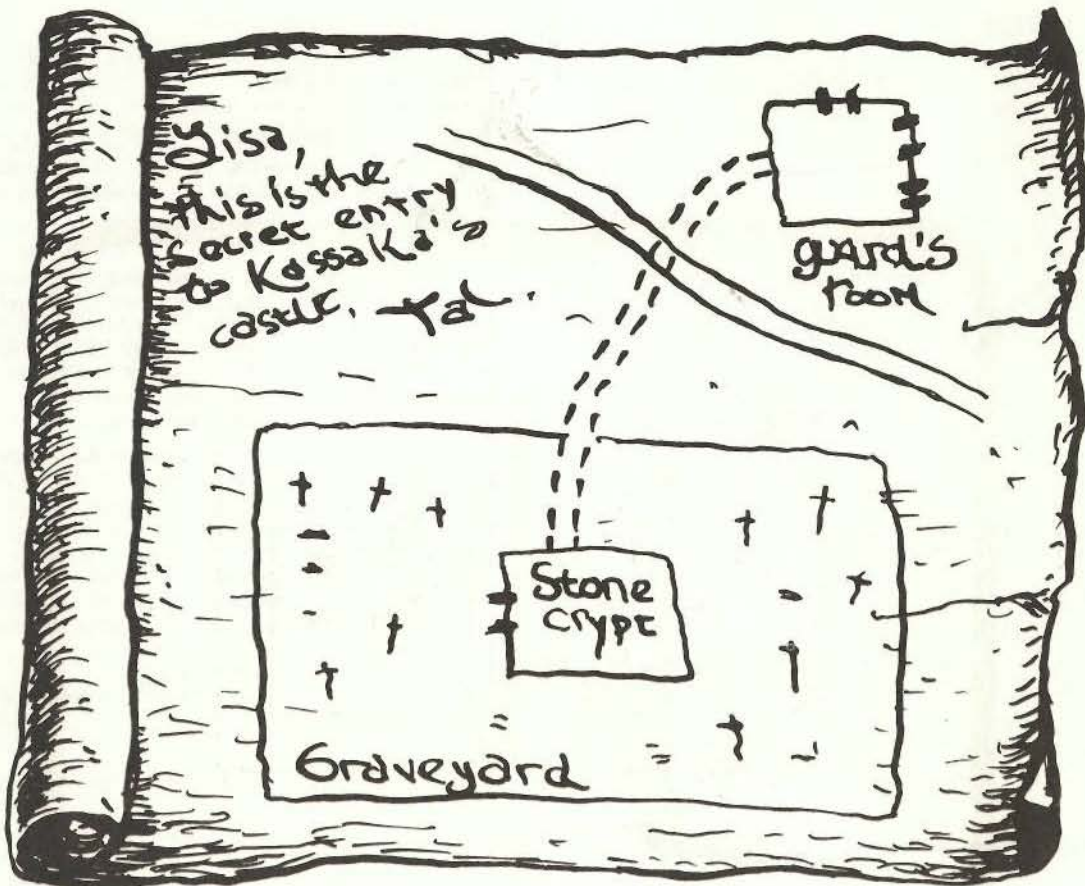 Lisa,
this is the
secret entry
to Kassaka's
castle. Tal.
guard's
room
Stone
crypt
Graveyard